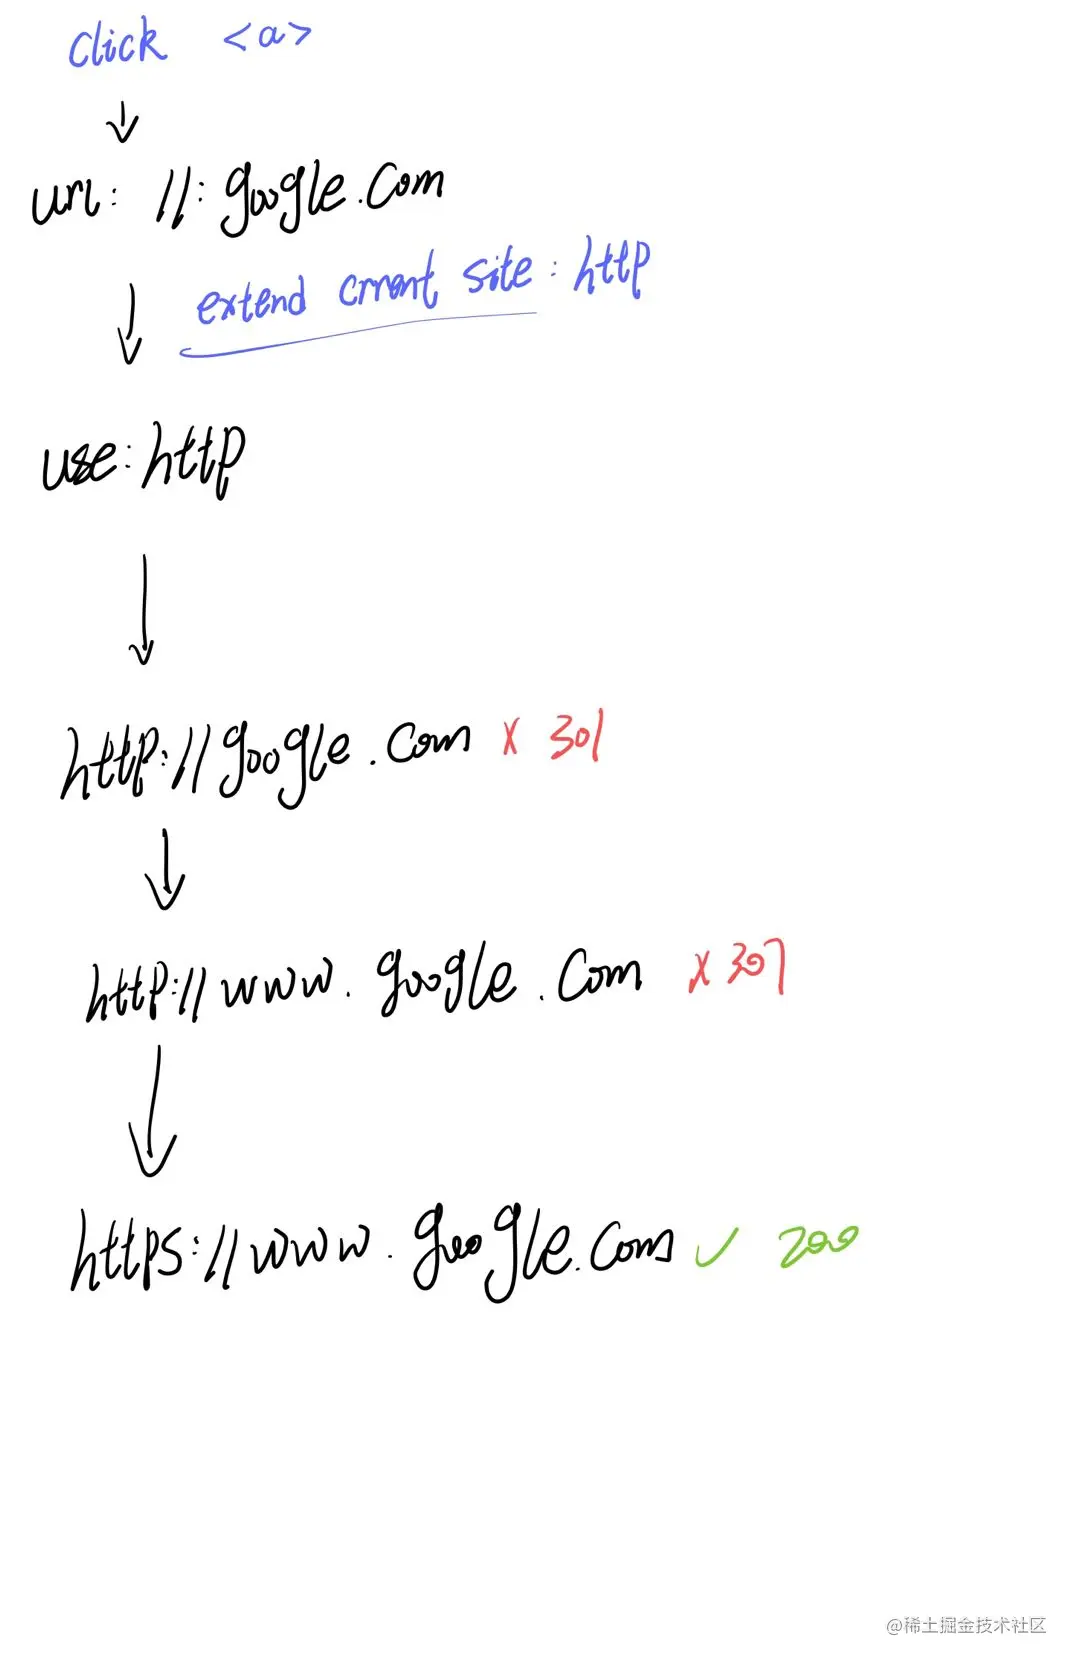 click <a>
url: //:google.com
extend crrent site: http
use: http
http://google.com x 301
http://www.google.com x 307
https://www.google.com ✓ 200
@稀土掘金技术社区